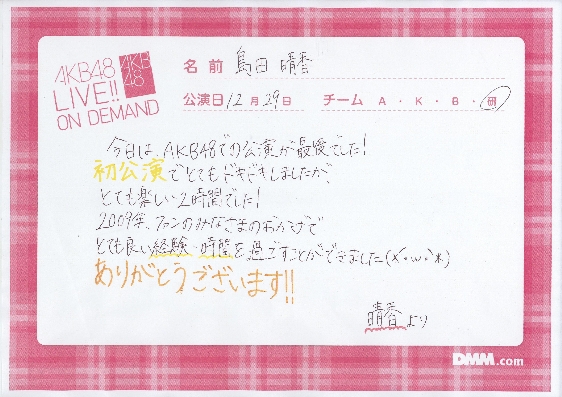 AKB48
LIVE!!
ON DEMAND
AKB
48
名前 島田 晴香
公演日 12月29日 チーム A・K・B・研
今日は、AKB48での公演が最後でした!
初公演でとてもドキドキしましたが、
とても楽しい2時間でした!
2009年、ファンのみなさまのおかげで
とても良い経験・時間を過ごすことができました(*´・ω・`*)
ありがとうございます!!
晴香より
DMM.com